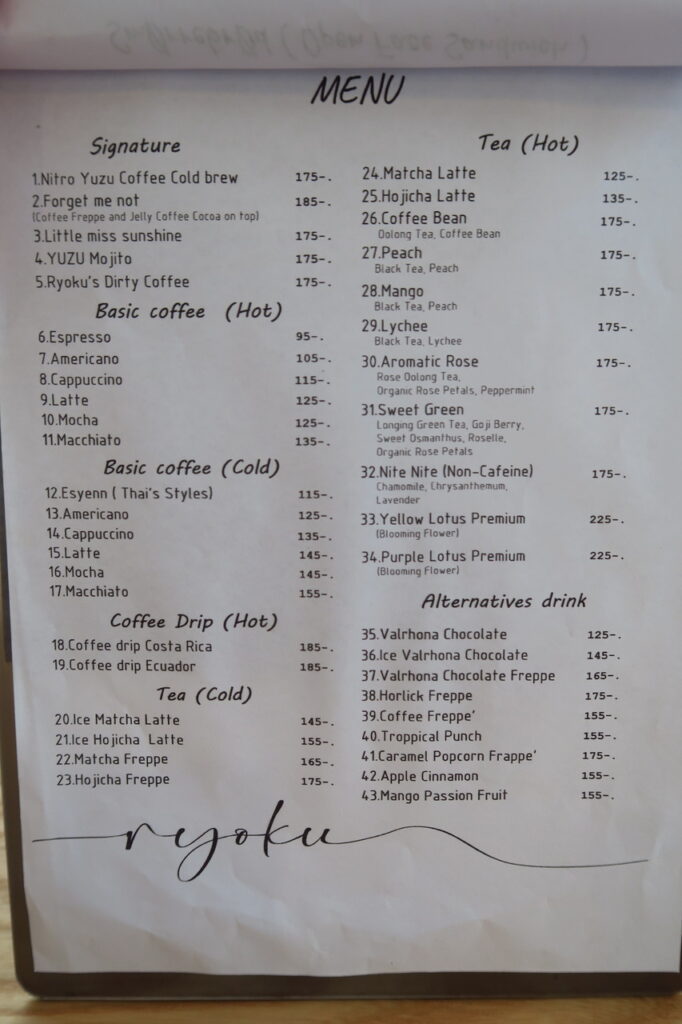 Smørrebrød ( Open Face Sandwich )
MENU
Signature
1.Nitro Yuzu Coffee Cold brew 175-.
2.Forget me not 185-.
(Coffee Freppe and Jelly Coffee Cocoa on top)
3.Little miss sunshine 175-.
4.YUZU Mojito 175-.
5.Ryoku's Dirty Coffee 175-.
Basic coffee (Hot)
6.Espresso 95-.
7.Americano 105-.
8.Cappuccino 115-.
9.Latte 125-.
10.Mocha 125-.
11.Macchiato 135-.
Basic coffee (Cold)
12.Esyenn ( Thai's Styles) 115-.
13.Americano 125-.
14.Cappuccino 135-.
15.Latte 145-.
16.Mocha 145-.
17.Macchiato 155-.
Coffee Drip (Hot)
18.Coffee drip Costa Rica 185-.
19.Coffee drip Ecuador 185-.
Tea (Cold)
20.Ice Matcha Latte 145-.
21.Ice Hojicha Latte 155-.
22.Matcha Freppe 165-.
23.Hojicha Freppe 175-.
Tea (Hot)
24.Matcha Latte 125-.
25.Hojicha Latte 135-.
26.Coffee Bean 175-.
Oolong Tea, Coffee Bean
27.Peach 175-.
Black Tea, Peach
28.Mango 175-.
Black Tea, Peach
29.Lychee 175-.
Black Tea, Lychee
30.Aromatic Rose 175-.
Rose Oolong Tea,
Organic Rose Petals, Peppermint
31.Sweet Green 175-.
Longing Green Tea, Goji Berry,
Sweet Osmanthus, Roselle,
Organic Rose Petals
32.Nite Nite (Non-Cafeine) 175-.
Chamomile, Chrysanthemum,
Lavender
33.Yellow Lotus Premium 225-.
(Blooming Flower)
34.Purple Lotus Premium 225-.
(Blooming Flower)
Alternatives drink
35.Valrhona Chocolate 125-.
36.Ice Valrhona Chocolate 145-.
37.Valrhona Chocolate Freppe 165-.
38.Horlick Freppe 175-.
39.Coffee Freppe' 155-.
40.Troppical Punch 155-.
41.Caramel Popcorn Frappe' 175-.
42.Apple Cinnamon 155-.
43.Mango Passion Fruit 155-.
ryoku